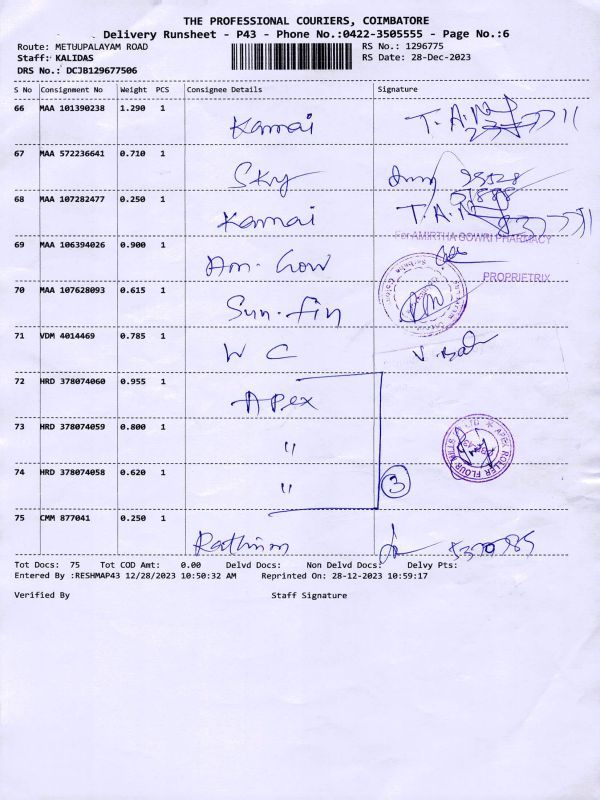 THE PROFESSIONAL COURIERS, COIMBATORE
Delivery Runsheet - P43 - Phone No.:0422-3505555 - Page No.:6
Route: METUUPALAYAM ROAD RS No.: 1296775
Staff: KALIDAS RS Date: 28-Dec-2023
DRS No.: DCJB129677506
S No Consignment No Weight PCS Consignee Details Signature
66 MAA 101390238 1.290 1
Kamai T.A.N
67 MAA 572236641 0.710 1
Sky
68 MAA 107282477 0.250 1
Kamai T.A.N
For AMIRTHA GOWRI PHARMACY
69 MAA 106394026 0.900 1
Am. Gow
PROPRIETRIX
70 MAA 107628093 0.615 1
Sun. fin
71 VDM 4014469 0.785 1
W C
72 HRD 378074060 0.955 1
Apex
73 HRD 378074059 0.800 1
"
APEX ROLLER FLOUR MILLS
74 HRD 378074058 0.620 1
" 3
75 CMM 877041 0.250 1
Tot Docs: 75 Tot COD Amt: 0.00 Delvd Docs: Non Delvd Docs: Delvy Pts:
Entered By :RESHMAP43 12/28/2023 10:50:32 AM Reprinted On: 28-12-2023 10:59:17
Verified By Staff Signature